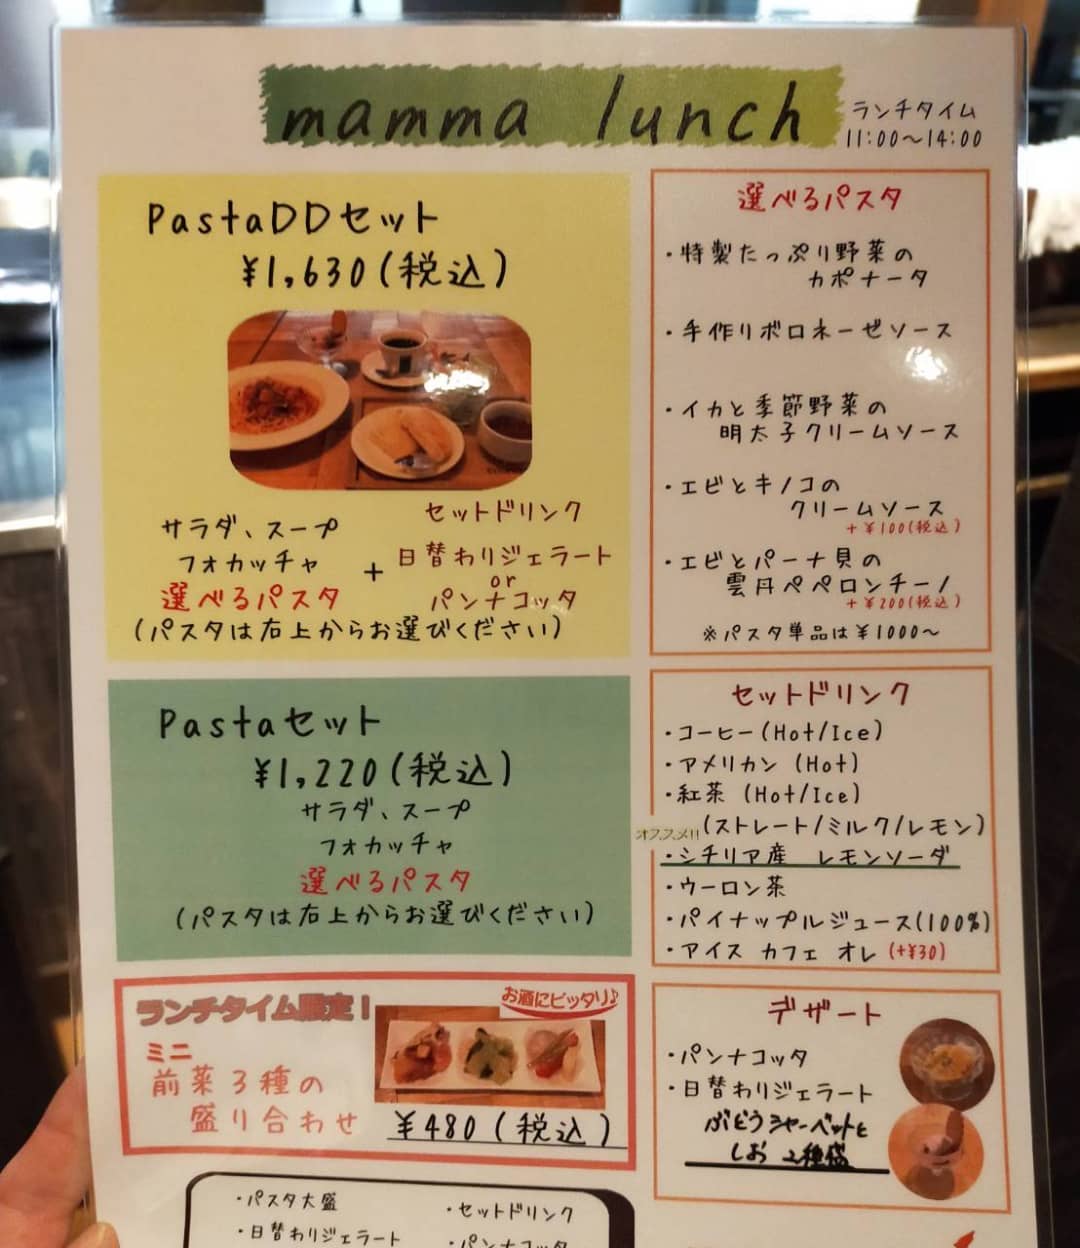 mamma lunch
ランチタイム
11:00～14:00
PastaDDセット
¥1,630(税込)
サラダ、スープ
フォカッチャ
選べるパスタ
+
セットドリンク
日替わりジェラート
or
パンナコッタ
(パスタは右上からお選びください)
選べるパスタ
・特製たっぷり野菜の
カポナータ
・手作りボロネーゼソース
・イカと季節野菜の
明太子クリームソース
・エビとキノコの
クリームソース
+¥100(税込)
・エビとパーナ貝の
雲丹ペペロンチーノ
+¥200(税込)
※パスタ単品は¥1000～
Pastaセット
¥1,220(税込)
サラダ、スープ
フォカッチャ
選べるパスタ
(パスタは右上からお選びください)
セットドリンク
・コーヒー(Hot/Ice)
・アメリカン (Hot)
・紅茶 (Hot/Ice)
(ストレート/ミルク/レモン)
オススメ!!
・シチリア産 レモンソーダ
・ウーロン茶
・パイナップルジュース(100%)
・アイス カフェ オレ (+¥30)
ランチタイム限定！
お酒にピッタリ♪
ミニ
前菜3種の
盛り合わせ
¥480(税込)
デザート
・パンナコッタ
・日替わりジェラート
ぶどうシャーベットと
しお 2種盛
・パスタ大盛
・日替わりジェラート
・セットドリンク
・パンナコッタ